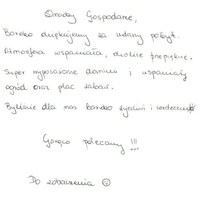 Drodzy Gospodarze,
Bardzo dziękujemy za udany pobyt.
Atmosfera wspaniała, okolice przepiękne.
Super wyposażone domki i wspaniały
ogród oraz plac zabaw.
Byliście dla nas bardzo życzliwi i serdeczni
Gorąco polecamy !!!
Do zobaczenia ☺